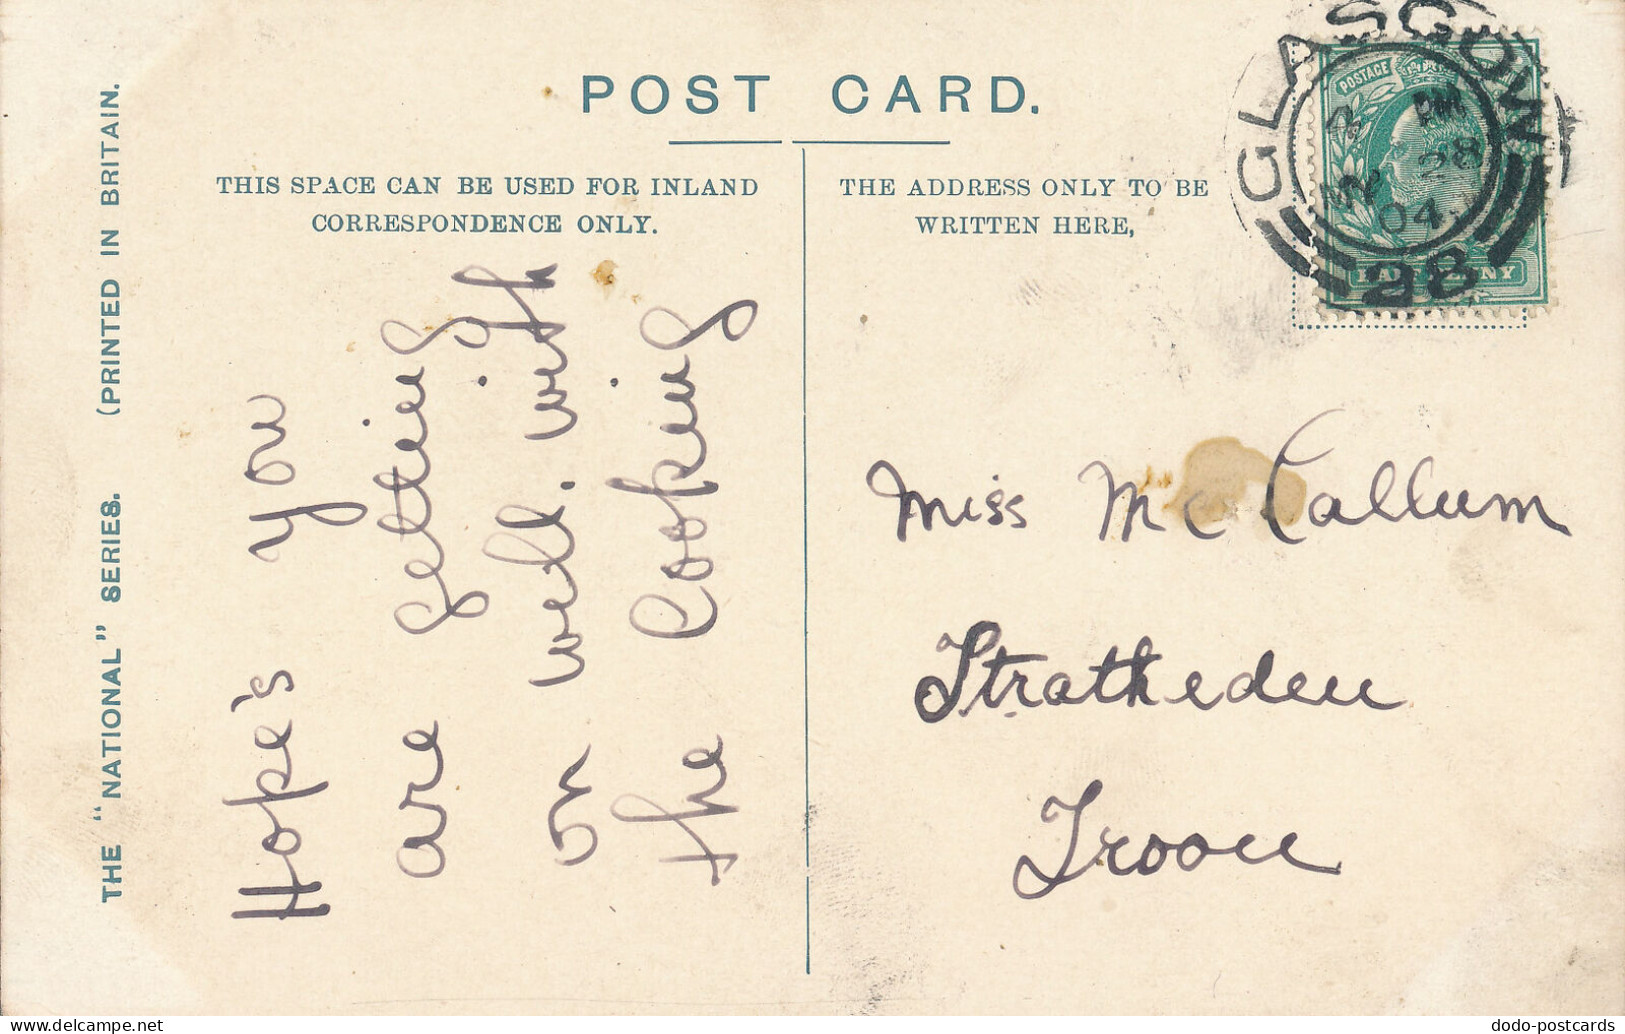 POST CARD.
THIS SPACE CAN BE USED FOR INLAND
CORRESPONDENCE ONLY.
THE ADDRESS ONLY TO BE
WRITTEN HERE,
THE "NATIONAL" SERIES. (PRINTED IN BRITAIN.
Hope's you
are getting
on well. with
the Cooking
Miss Mc Callum
Stratheden
Troon
GLASGOW
PM
28
04
28
POSTAGE
HALFPENNY
dodo-postcards